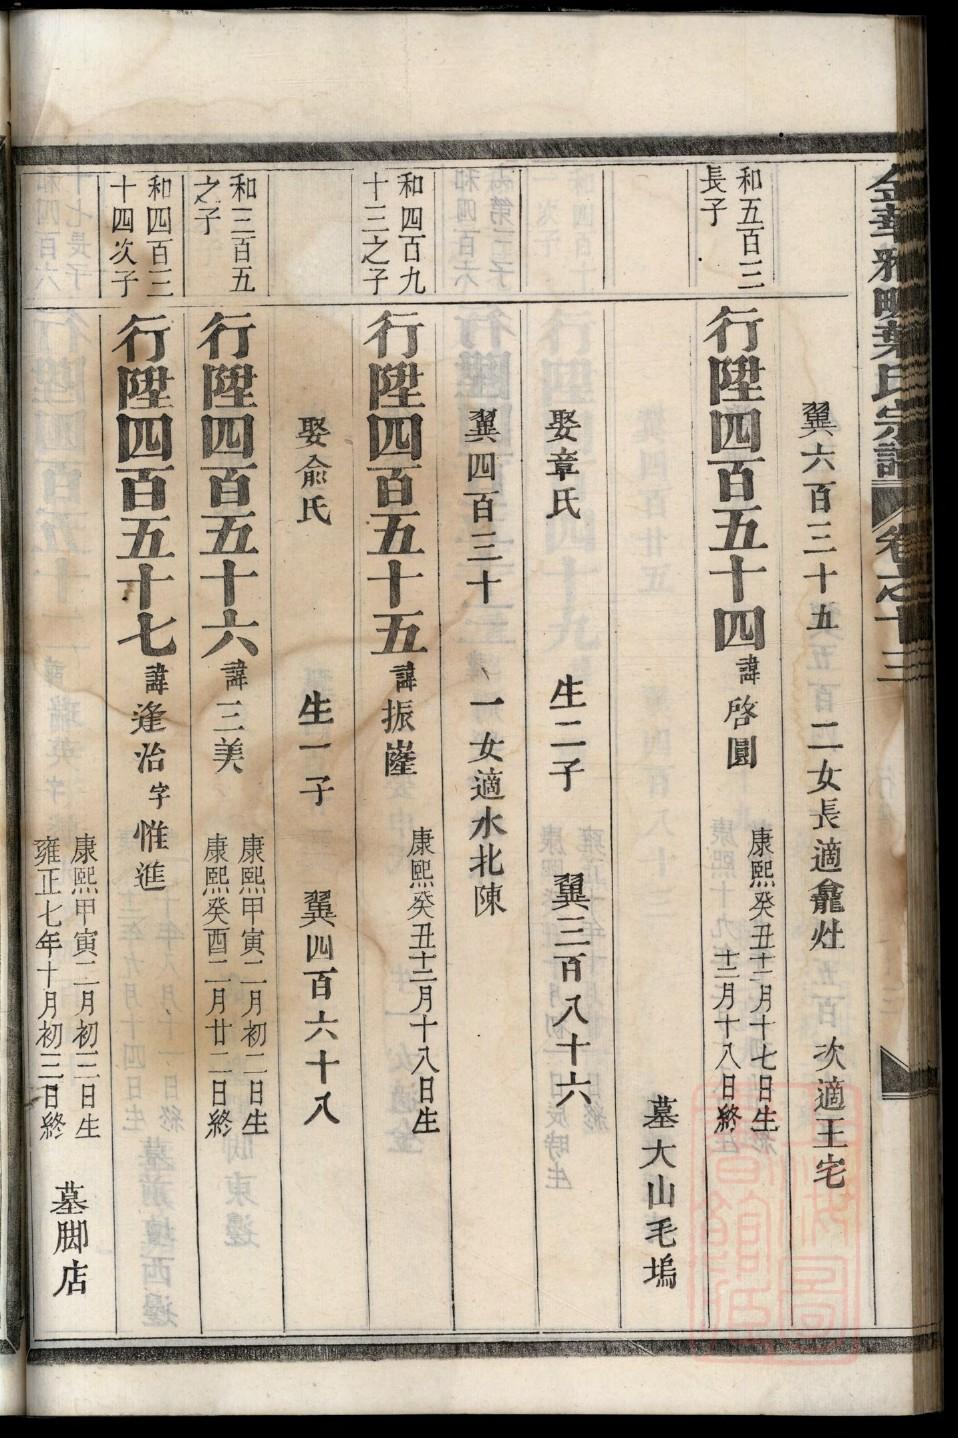 金華雅畈葉氏宗譜 卷之十三
翼六百三十五 二女長適龕灶 次適王宅
和五百三
長子
行陞四百五十四 諱啓圓
康熙癸丑十二月十七日生
十二月十八日終
墓大山毛塢
娶章氏 生二子 翼三百八十六
翼四百三十 一女適水北陳
和四百九
十三之子
行陞四百五十五 諱振嶐
康熙癸丑十二月十八日生
娶俞氏 生一子 翼四百六十八
和三百五
之子
行陞四百五十六 諱三美
康熙甲寅二月初二日生
康熙癸酉二月廿二日終
和四百二
十四次子
行陞四百五十七 諱逢治 字惟進
康熙甲寅二月初三日生
雍正七年十月初三日終
墓脚店